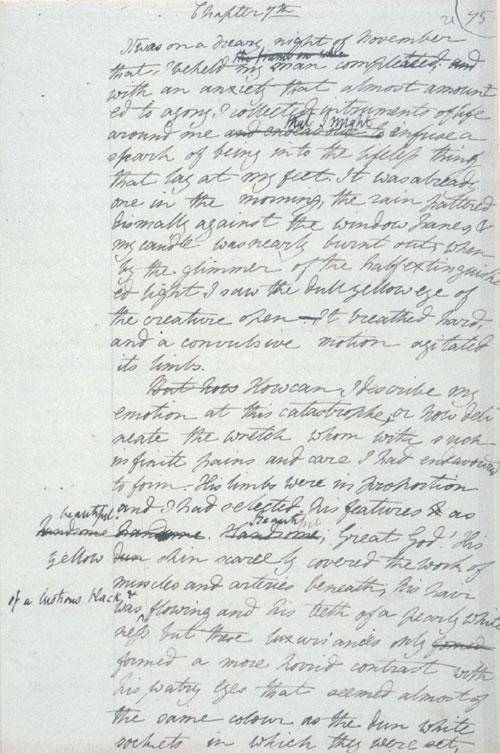 Chapter 7th
21 95
It was on a dreary night of November
the frame on whic
that I beheld my man completed; and
with an anxiety that almost amount
ed to agony, I collected instruments of life
that I might
around me and endeavour to infuse a
spark of being into the lifeless thing
that lay at my feet. It was already
one in the morning, the rain pattered
dismally against the window panes, &
my candle was nearly burnt out, when
by the glimmer of the half extinguish
ed light I saw the dull yellow eye of
the creature open – It breathed hard,
and a convulsive motion agitated
its limbs.
But how How can I describe my
emotion at this catastrophe; or how deli
neate the wretch whom with such
infinite pains and care I had endeavoured
to form. His limbs were in proportion
and I had selected his features as
beautiful.
handsome handsome. Handsome; Great God! His
Beautiful
yellow dun skin scarcely covered the work of
muscles and arteries beneath; his hair
of a lustrous black, &
was flowing and his teeth of a pearly white
ness but these luxuriances only formed
formed a more horrid contrast with
his watry eyes that seemed almost of
the same colour as the dun white
sockets in which they were set,